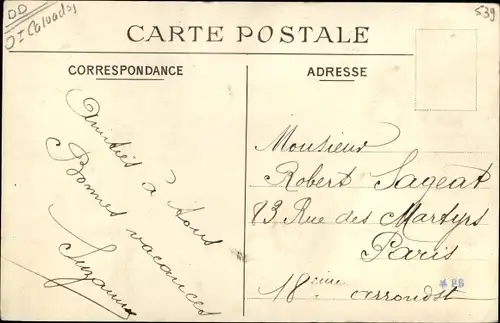 DD
Dt Calvados
539
CARTE POSTALE
CORRESPONDANCE
ADRESSE
Amitiés à tous
Bonnes vacances
Suzanne
Monsieur
Robert Sageat
73 Rue des Martyrs
Paris
18ème arrondst
* PB